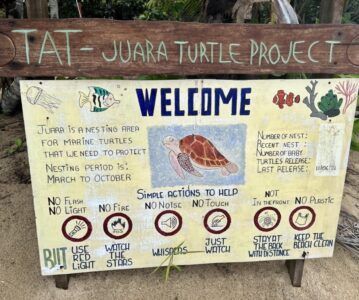 TAT - JUARA TURTLE PROJECT
WELCOME
JUARA IS A NESTING AREA
FOR MARINE TURTLES
THAT WE NEED TO PROTECT
NESTING PERIOD IS:
MARCH TO OCTOBER
NUMBER OF NEST:
RECENT NEST:
NUMBER OF BABY
TURTLES RELEASE:
LAST RELEASE:
SIMPLE ACTIONS TO HELP
NO FLASH
NO LIGHT
NO FIRE
NO NOISE
NO TOUCH
NOT
IN THE FRONT
NO PLASTIC
BUT
USE
RED
LIGHT
WATCH
THE
STARS
WHISPERS
JUST
WATCH
STAY AT THE
BACK
WITH DISTANCE
KEEP THE
BEACH CLEAN